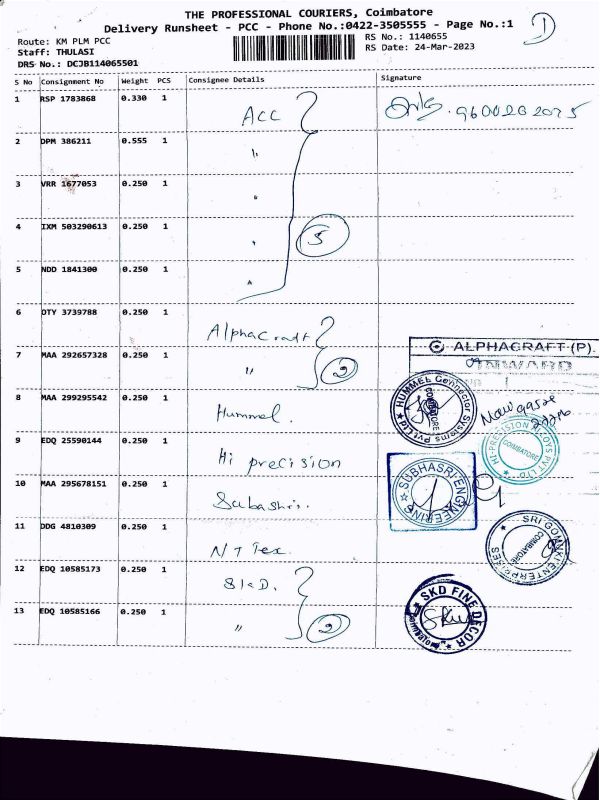 THE PROFESSIONAL COURIERS, Coimbatore
Delivery Runsheet - PCC - Phone No.:0422-3505555 - Page No.:1
Route: KM PLM PCC
RS No.: 1140655
Staff: THULASI
RS Date: 24-Mar-2023
DRS No.: DCJB114065501
S No Consignment No Weight PCS Consignee Details Signature
1 RSP 1783868 0.330 1 ACC 9600202075
2 DPM 386211 0.555 1 "
3 VRR 1677053 0.250 1 "
4 IXM 503290613 0.250 1 "
5
5 NDD 1841300 0.250 1 "
6 OTY 3739788 0.250 1 Alphacraft
ALPHACRAFT (P).
INWARD
7 MAA 292657328 0.250 1 "
2
8 MAA 299295542 0.250 1 Hummel.
HUMMEL Connector Systems Pvt Ltd
COIMBATORE
9 EDQ 25590144 0.250 1 Hi precision
HI-PRECISION ALLOYS PVT LTD
COIMBATORE
10 MAA 295678151 0.250 1 Subashri.
SUBHASRI ENGINEERING
11 DDG 4810309 0.250 1 N T Tex.
SRI GOMUKI ENTERPRISES
COIMBATORE
12 EDQ 10585173 0.250 1 SKD.
SKD FINE DECOR
13 EDQ 10585166 0.250 1 "
2